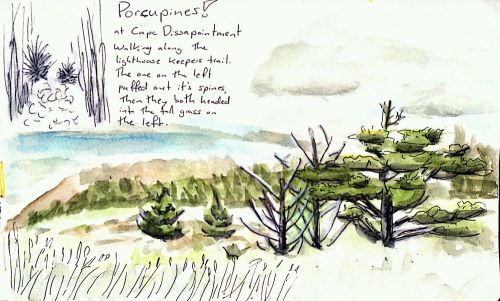 Porcupines!
at Cape Dissapointment
Walking along the
lighthouse keepers trail.
The one on the left
puffed out it's spines,
Then they both headed
into the tall grass on
the left.